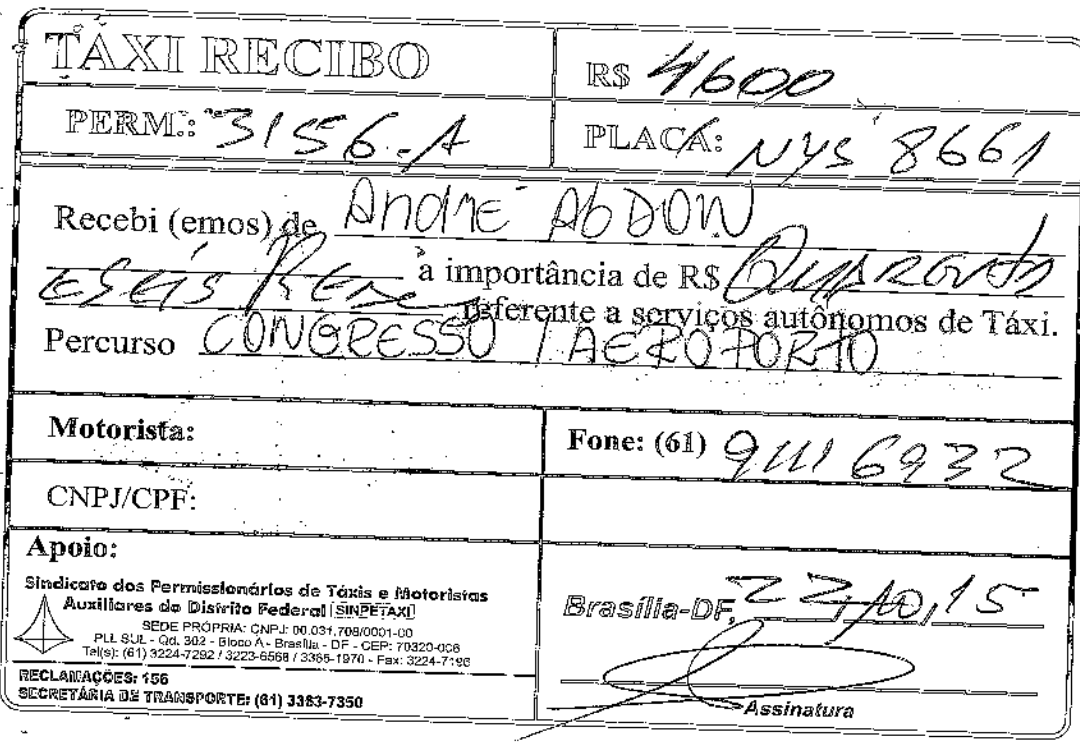 TÁXI RECIBO
R$ 4600
PERM.: 3156-A
PLACA: NYS 8661
Recebi (emos) de André AbDON
a importância de R$ QUARENTA
ESEIS REAES
referente a serviços autônomos de Táxi.
Percurso CONGRESSO / AEROPORTO
Motorista:
Fone: (61) 9111 6932
CNPJ/CPF:
Apoio:
Sindicato dos Permissionários de Táxis e Motoristas
Auxiliares do Distrito Federal [SINPETAXI]
SEDE PRÓPRIA: CNPJ: 00.031.708/0001-00
PLL SUL - Qd. 302 - Bloco A - Brasília - DF - CEP: 70320-006
Tel(s): (61) 3224-7292 / 3223-6568 / 3365-1970 - Fax: 3224-7196
RECLAMAÇÕES: 156
SECRETÁRIA DE TRANSPORTE: (61) 3383-7350
Brasília-DF, 22,10,15
Assinatura